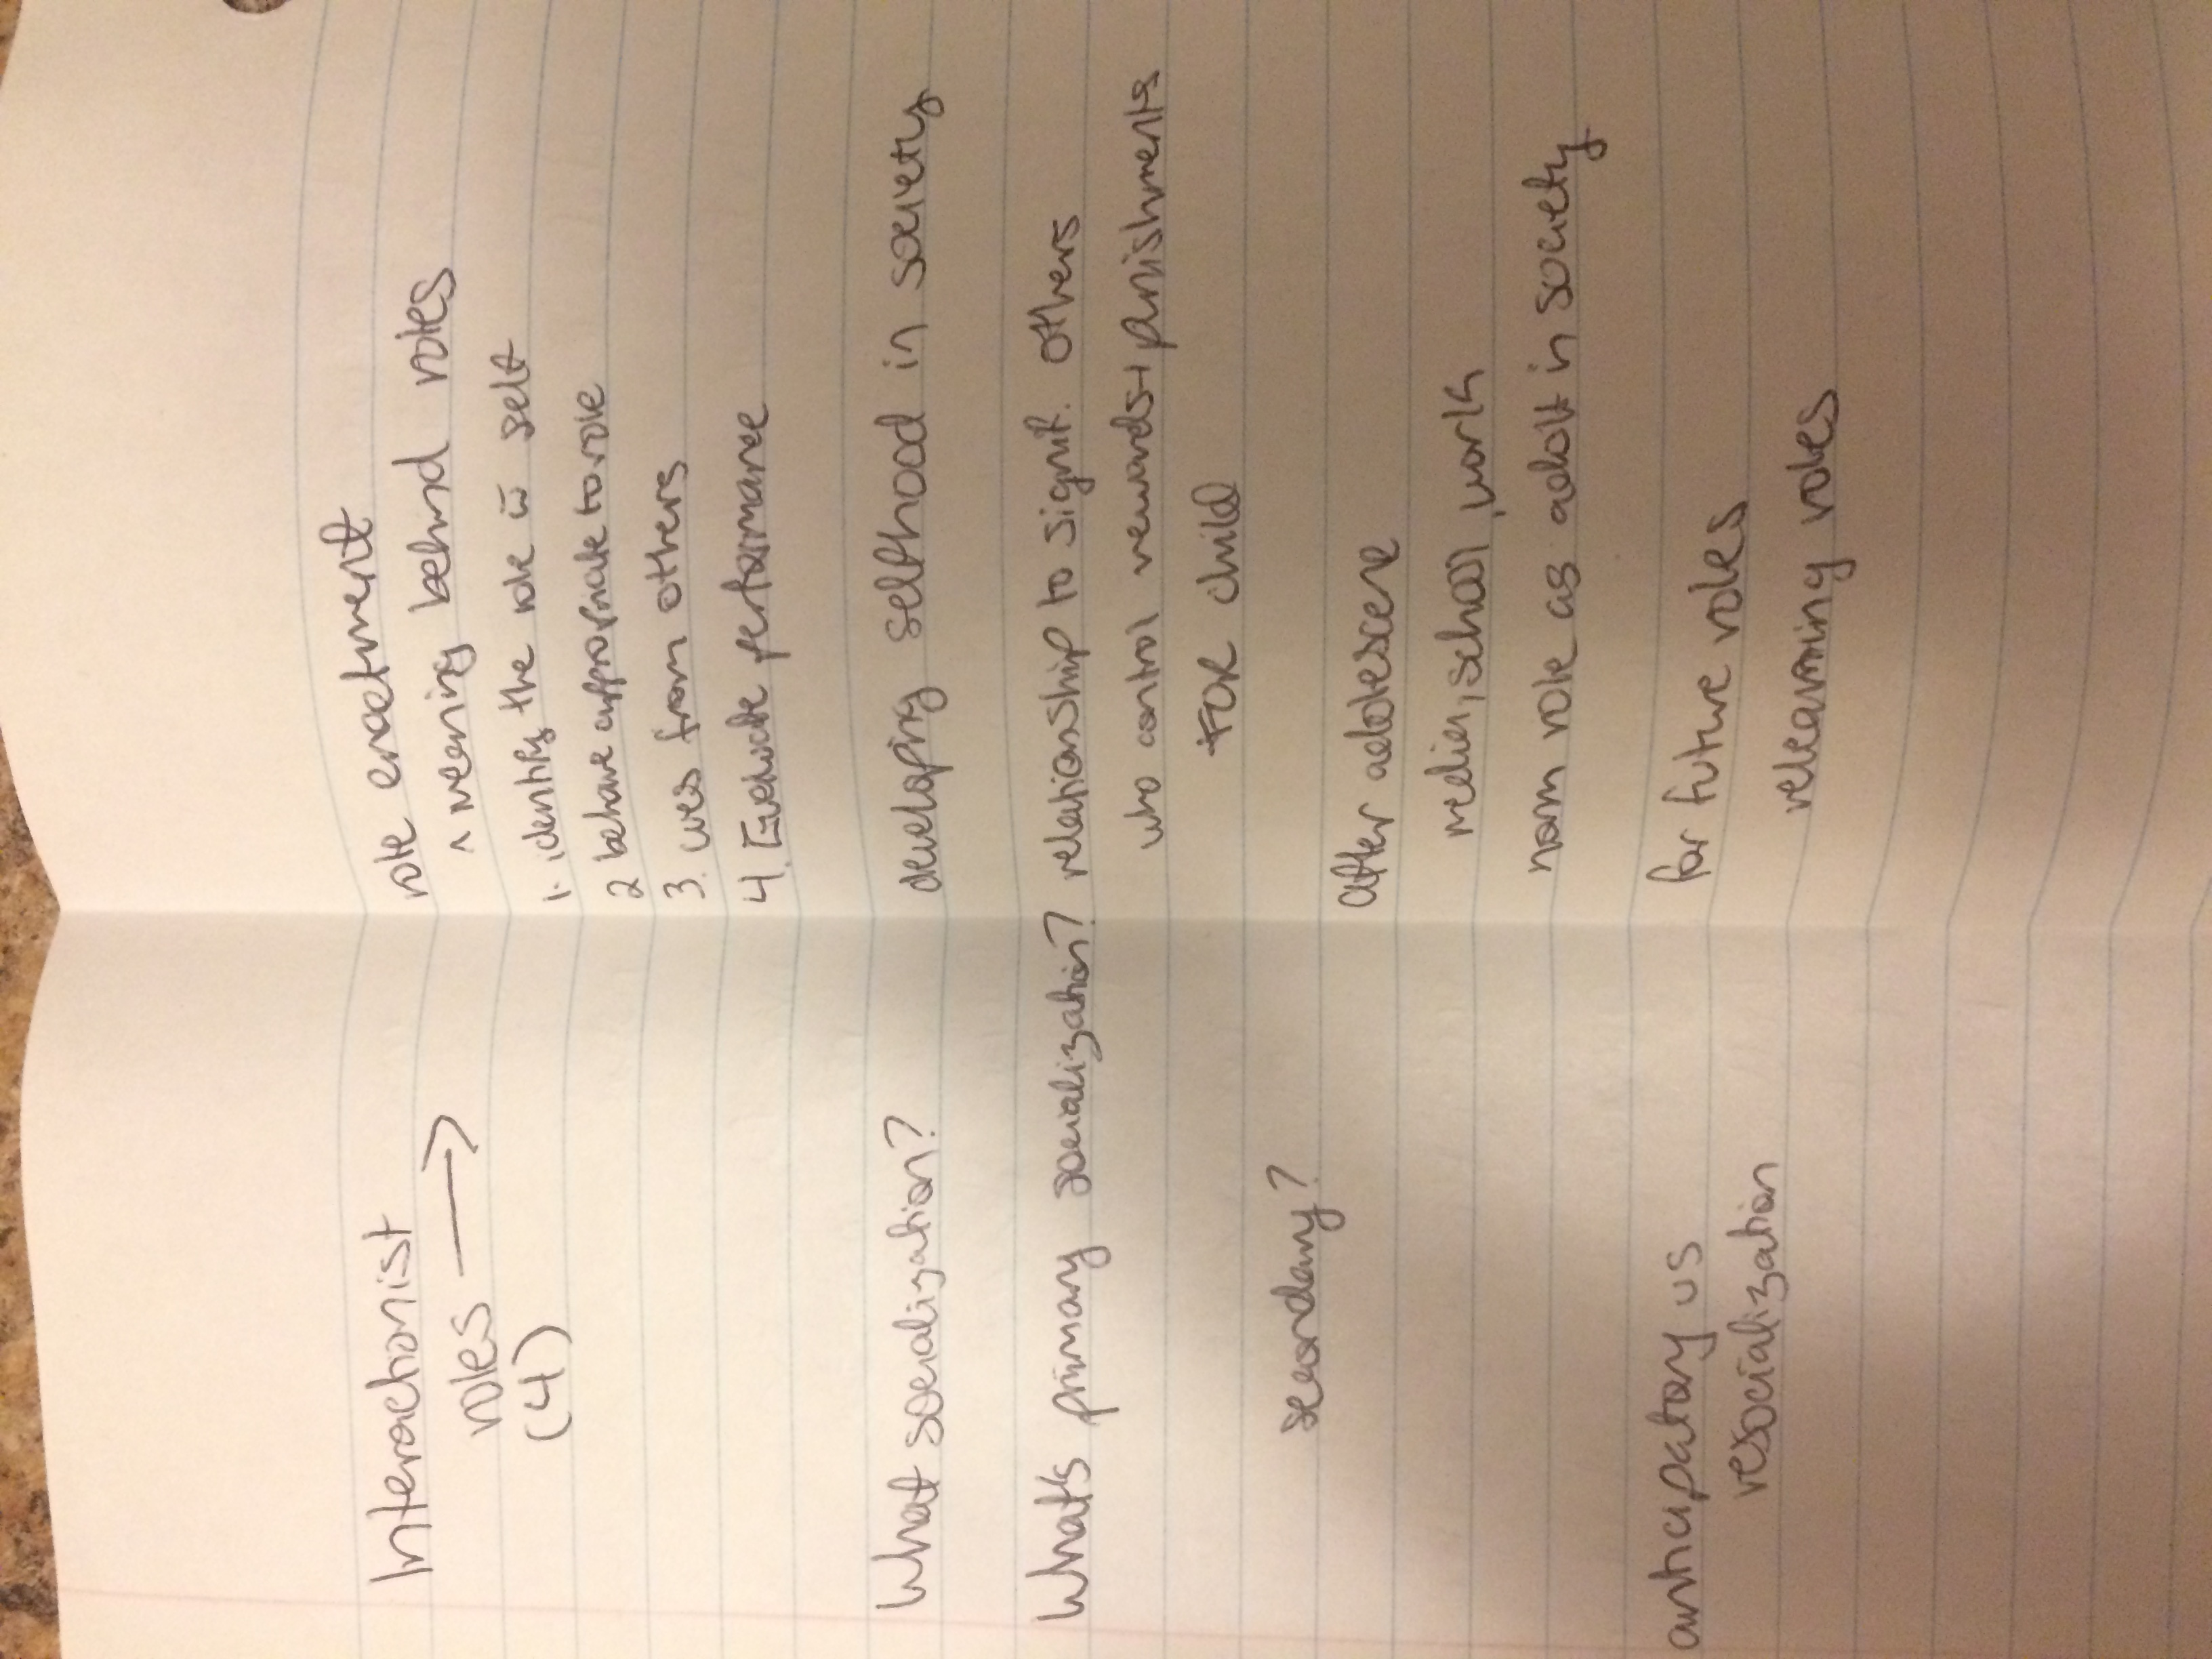 Interactionist
roles →
(4)
role enactment
^ meaning behind roles
1. identify the role in self
2 behave appropriate to role
3. cues from others
4. Evaluate performance
What socialization?
developing selfhood in society
What's primary socialization?
relationship to signif. others
who control rewards + punishments
FOR child
secondary?
after adolescence
media, school, work
norm role as adult in society
anticipatory vs
resocialization
for future roles
relearning roles